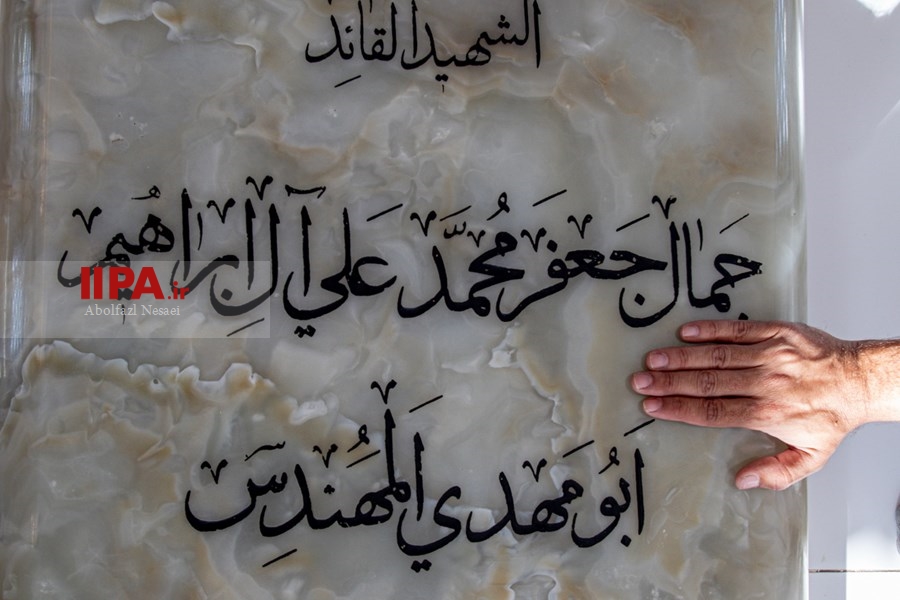 الشهيد القائد
جَمَال جَعفَر مُحَمَّد عَلي آل ابراهيم
اَبُو مَهدي المُهَندِس
IIPA.ir
Abolfazl Nesaei